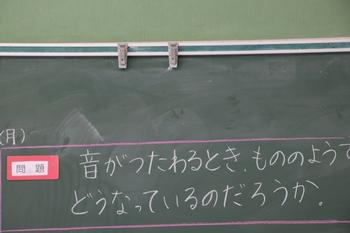 (月)
問題
音がつたわるとき、もののようす
どうなっているのだろうか。